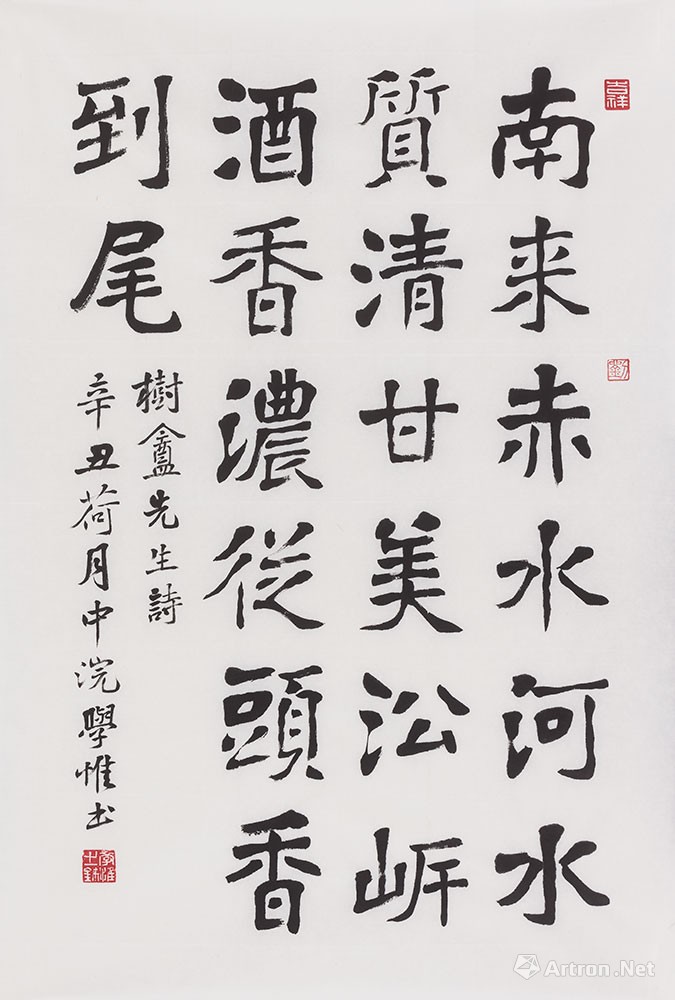 吉祥
南来赤水河水
質清甘美㳂岸
酒香濃從頭香
到尾
樹盦先生詩
辛丑荷月中浣學惟书
Artron.Net